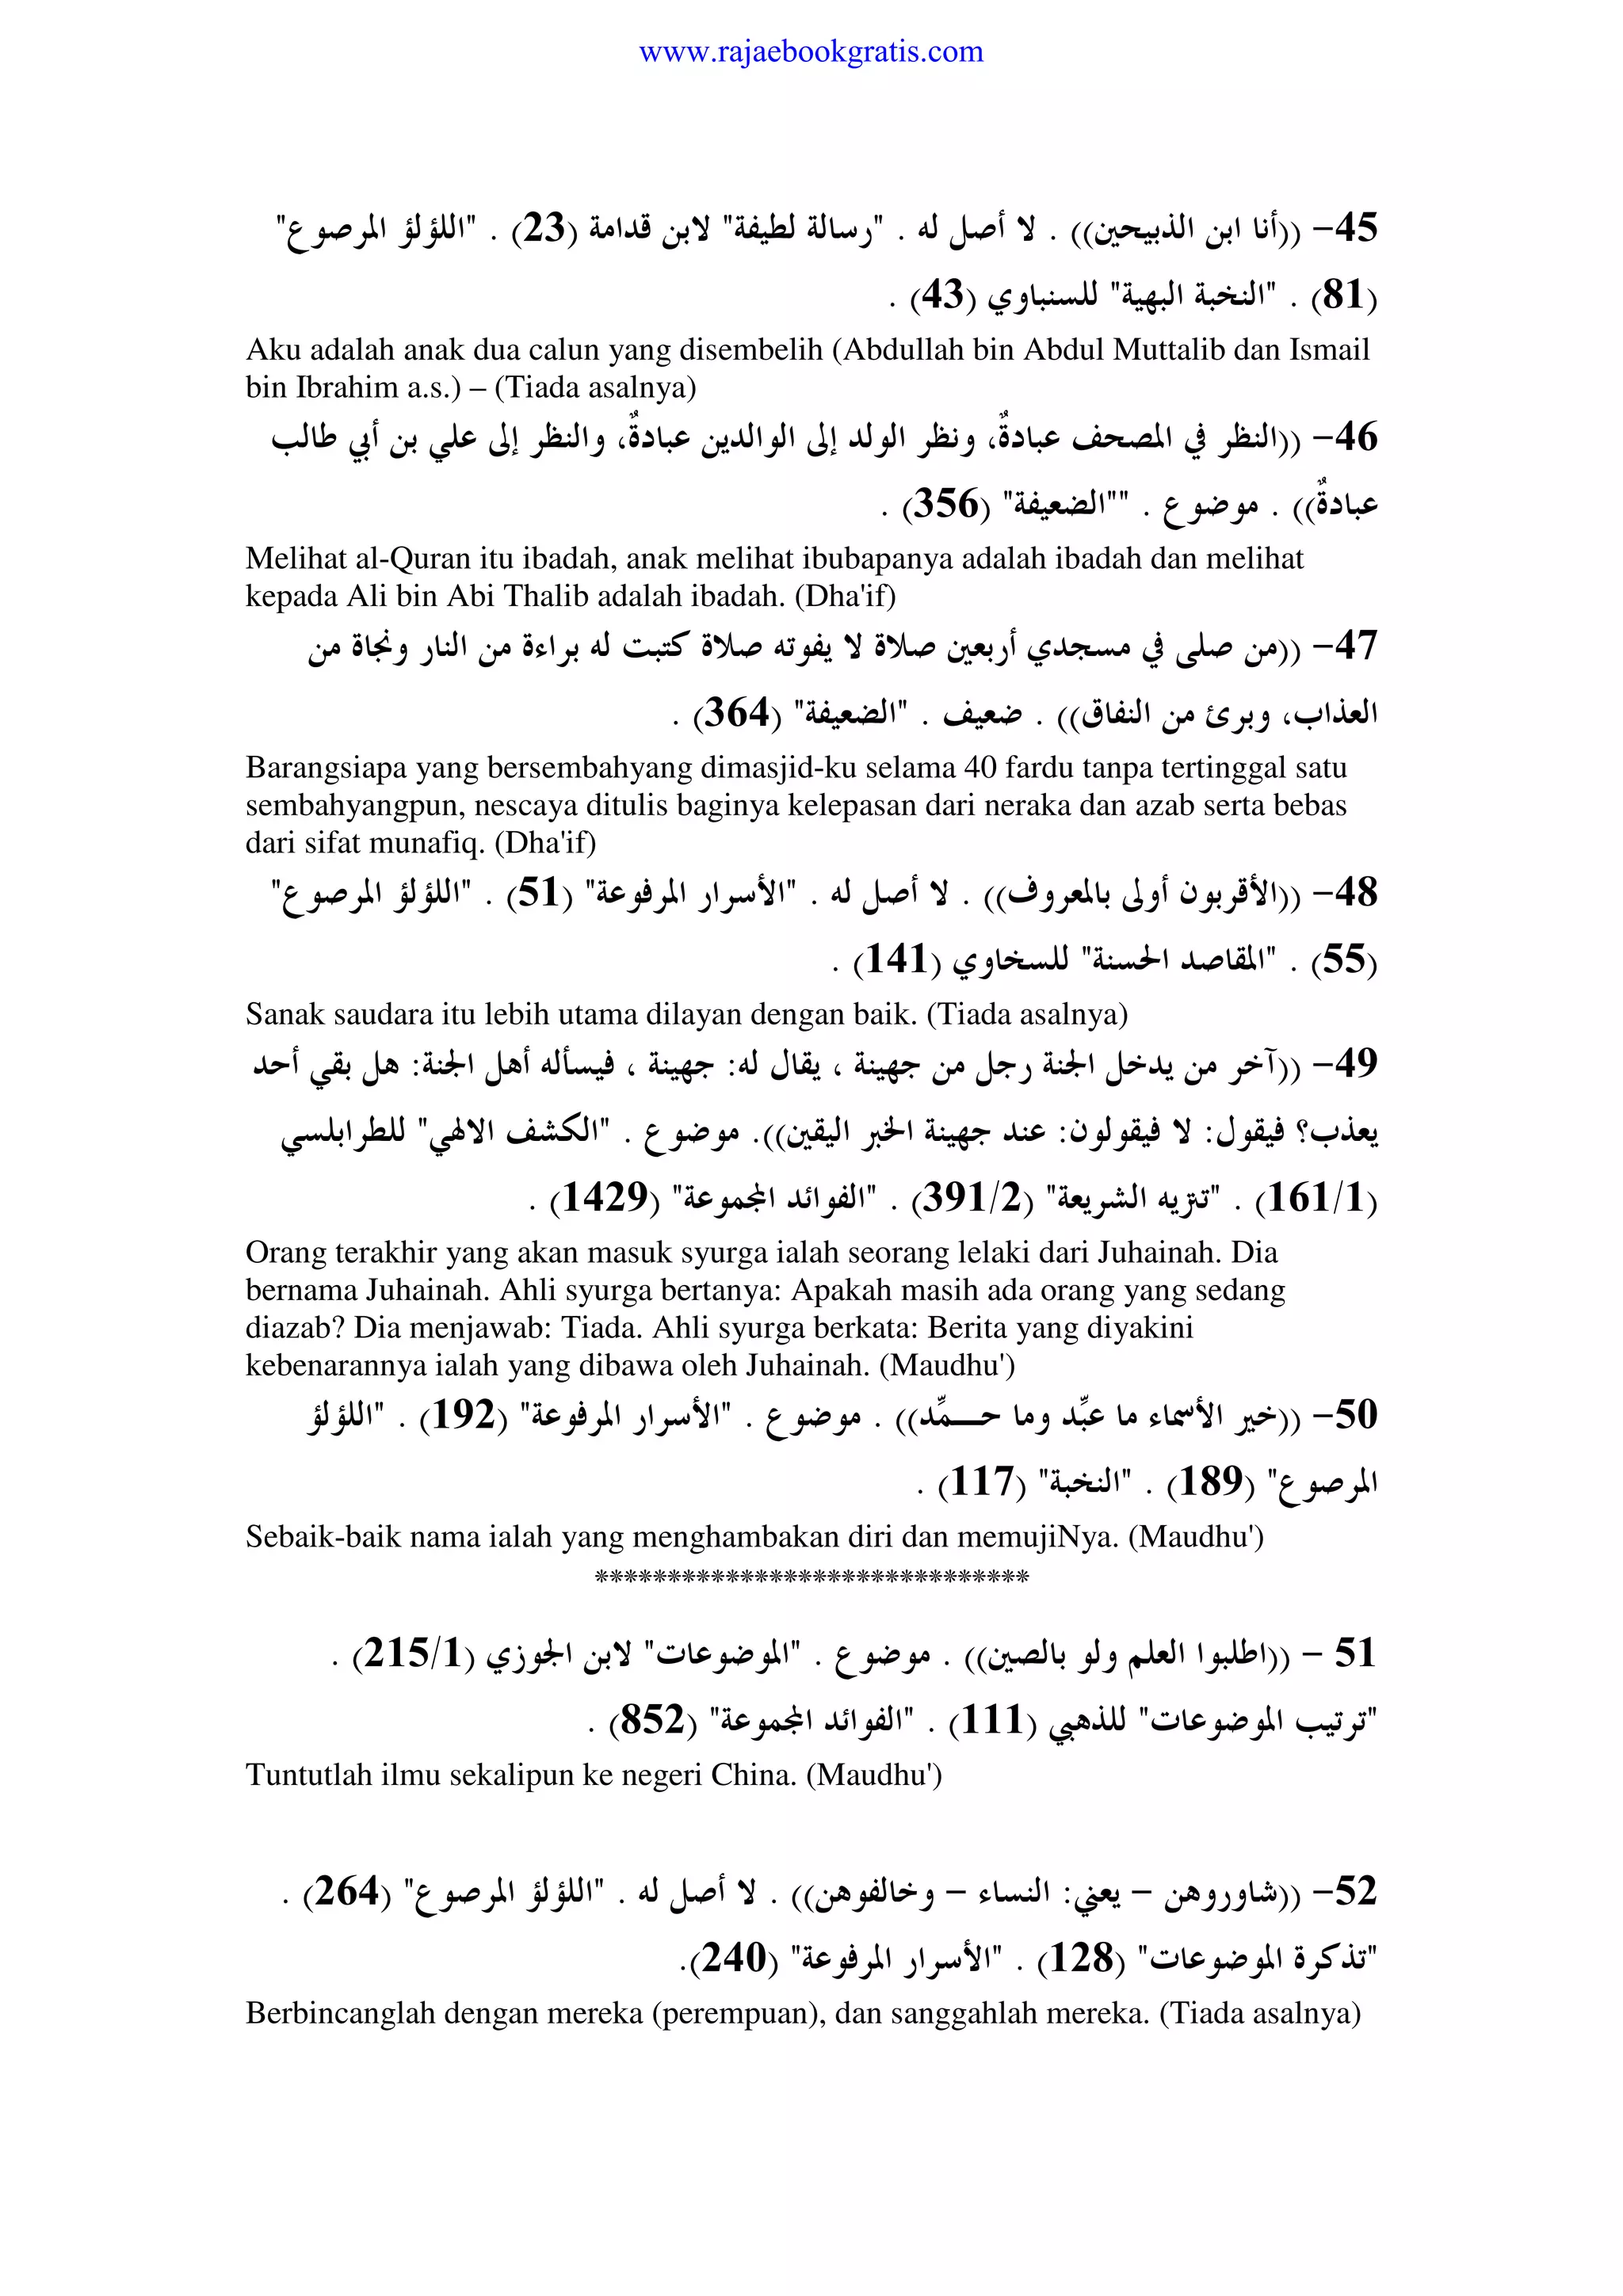 www.rajaebookgratis.com
45- ((أنا ابن الذبيحين)) . لا أصل له . "رسالة لطيفة" لابن قدامة (23) . "اللؤلؤ المرصوع"
(81) . "النخبة البهية" للسنباوي (43) .
Aku adalah anak dua calun yang disembelih (Abdullah bin Abdul Muttalib dan Ismail
bin Ibrahim a.s.) – (Tiada asalnya)
46- ((النظر في المصحف عبادةٌ، ونظر الولد إلى الوالدين عبادةٌ، والنظر إلى علي بن أبي طالب
عبادةٌ)) . موضوع . ""الضعيفة" (356) .
Melihat al-Quran itu ibadah, anak melihat ibubapanya adalah ibadah dan melihat
kepada Ali bin Abi Thalib adalah ibadah. (Dha'if)
47- ((من صلى في مسجدي أربعين صلاة لا يفوته صلاة كتبت له براءة من النار ونجاة من
العذاب، وبرئ من النفاق)) . ضعيف . "الضعيفة" (364) .
Barangsiapa yang bersembahyang dimasjid-ku selama 40 fardu tanpa tertinggal satu
sembahyangpun, nescaya ditulis baginya kelepasan dari neraka dan azab serta bebas
dari sifat munafiq. (Dha'if)
48- ((الأقربون أولى بالمعروف)) . لا أصل له . "الأسرار المرفوعة" (51) . "اللؤلؤ المرصوع"
(55) . "المقاصد الحسنة" للسخاوي (141) .
Sanak saudara itu lebih utama dilayan dengan baik. (Tiada asalnya)
49- ((آخر من يدخل الجنة رجل من جهينة ، يقال له: جهينة ، فيسأله أهل الجنة: هل بقي أحد
يعذب؟ فيقول: لا فيقولون: عند جهينة الخبر اليقين)). موضوع . "الكشف الالهي" للطرابلسي
(161/1) . "تتريه الشريعة" (391/2) . "الفوائد المجموعة" (1429) .
Orang terakhir yang akan masuk syurga ialah seorang lelaki dari Juhainah. Dia
bernama Juhainah. Ahli syurga bertanya: Apakah masih ada orang yang sedang
diazab? Dia menjawab: Tiada. Ahli syurga berkata: Berita yang diyakini
kebenarannya ialah yang dibawa oleh Juhainah. (Maudhu')
50- ((خير الأسماء ما عبِّد وما حـــمِّد)) . موضوع . "الأسرار المرفوعة" (192) . "اللؤلؤ
المرصوع" (189) . "النخبة" (117) .
Sebaik-baik nama ialah yang menghambakan diri dan memujiNya. (Maudhu')
******************************
51 - ((اطلبوا العلم ولو بالصين)) . موضوع . "الموضوعات" لابن الجوزي (215/1) .
"ترتيب الموضوعات" للذهبي (111) . "الفوائد المجموعة" (852) .
Tuntutlah ilmu sekalipun ke negeri China. (Maudhu')
52- ((شاوروهن – يعني: النساء – وخالفوهن)) . لا أصل له . "اللؤلؤ المرصوع" (264) .
"تذكرة الموضوعات" (128) . "الأسرار المرفوعة" (240).
Berbincanglah dengan mereka (perempuan), dan sanggahlah mereka. (Tiada asalnya)